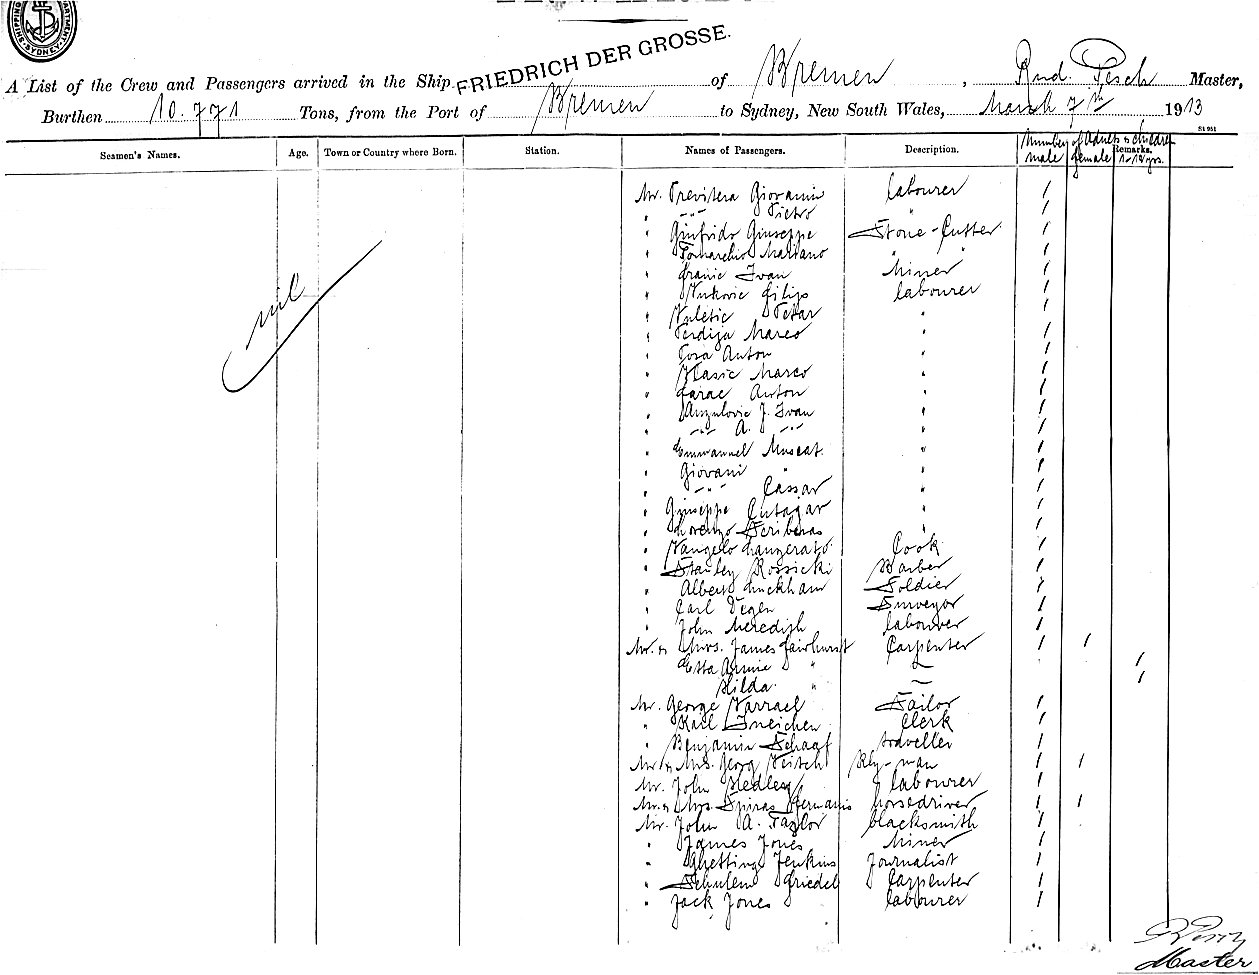 SYDNEY
FRIEDRICH DER GROSSE.
A List of the Crew and Passengers arrived in the Ship of Bremen, Rud. Pesch Master,
Burthen 10.771 Tons, from the Port of Bremen to Sydney, New South Wales, March 7th 1913
St 951
Seamen's Names. Age. Town or Country where Born. Station. Names of Passengers. Description. Number of Adults & children male female Remarks. 1-12 yrs.
Mr. Previtera Giovanni labourer 1
" -"- Pietro " 1
" Giufrido Giuseppe Stone-Cutter 1
" Tomarchio Mariano " 1
" Franic Ivan Miner 1
" Vukovic Filip labourer 1
" Vuletic Petar " 1
" Perdija Marco " 1
" Anton " 1
" Vlasic Marco " 1
" Farac Anton " 1
" Anzulovic J. Ivan " 1
" -"- A. -"- " 1
" Emmanuel Muscat " 1
" Giovani " " 1
" -"- Cassar " 1
" Giuseppe Cutajar " 1
" Lorenzo Scriberas " 1
" Vangelo Cook 1
" Stanley Rossicki Barber 1
" Albert Luckham Soldier 1
" Carl Degen Surveyor 1
" John Meredith labourer 1
Mr. & Mrs. James Fairhurst Carpenter 1 1
Etta Annie " 1
Hilda " 1
Mr. George Varrael Tailor 1
" Karl Ineichen Clerk 1
" Benjamin Schaaf traveller 1
Mr. & Mrs. Georg Veitch Rly-man 1 1
Mr. John Medley labourer 1
Mr. & Mrs. Spiras Germanis horsedriver 1 1
Mr. John A. Taylor blacksmith 1
" James Jones Miner 1
" Ghetting Jenkins Journalist 1
" Friedel Carpenter 1
" Jack Jones labourer 1
nil
R Pesch
Master